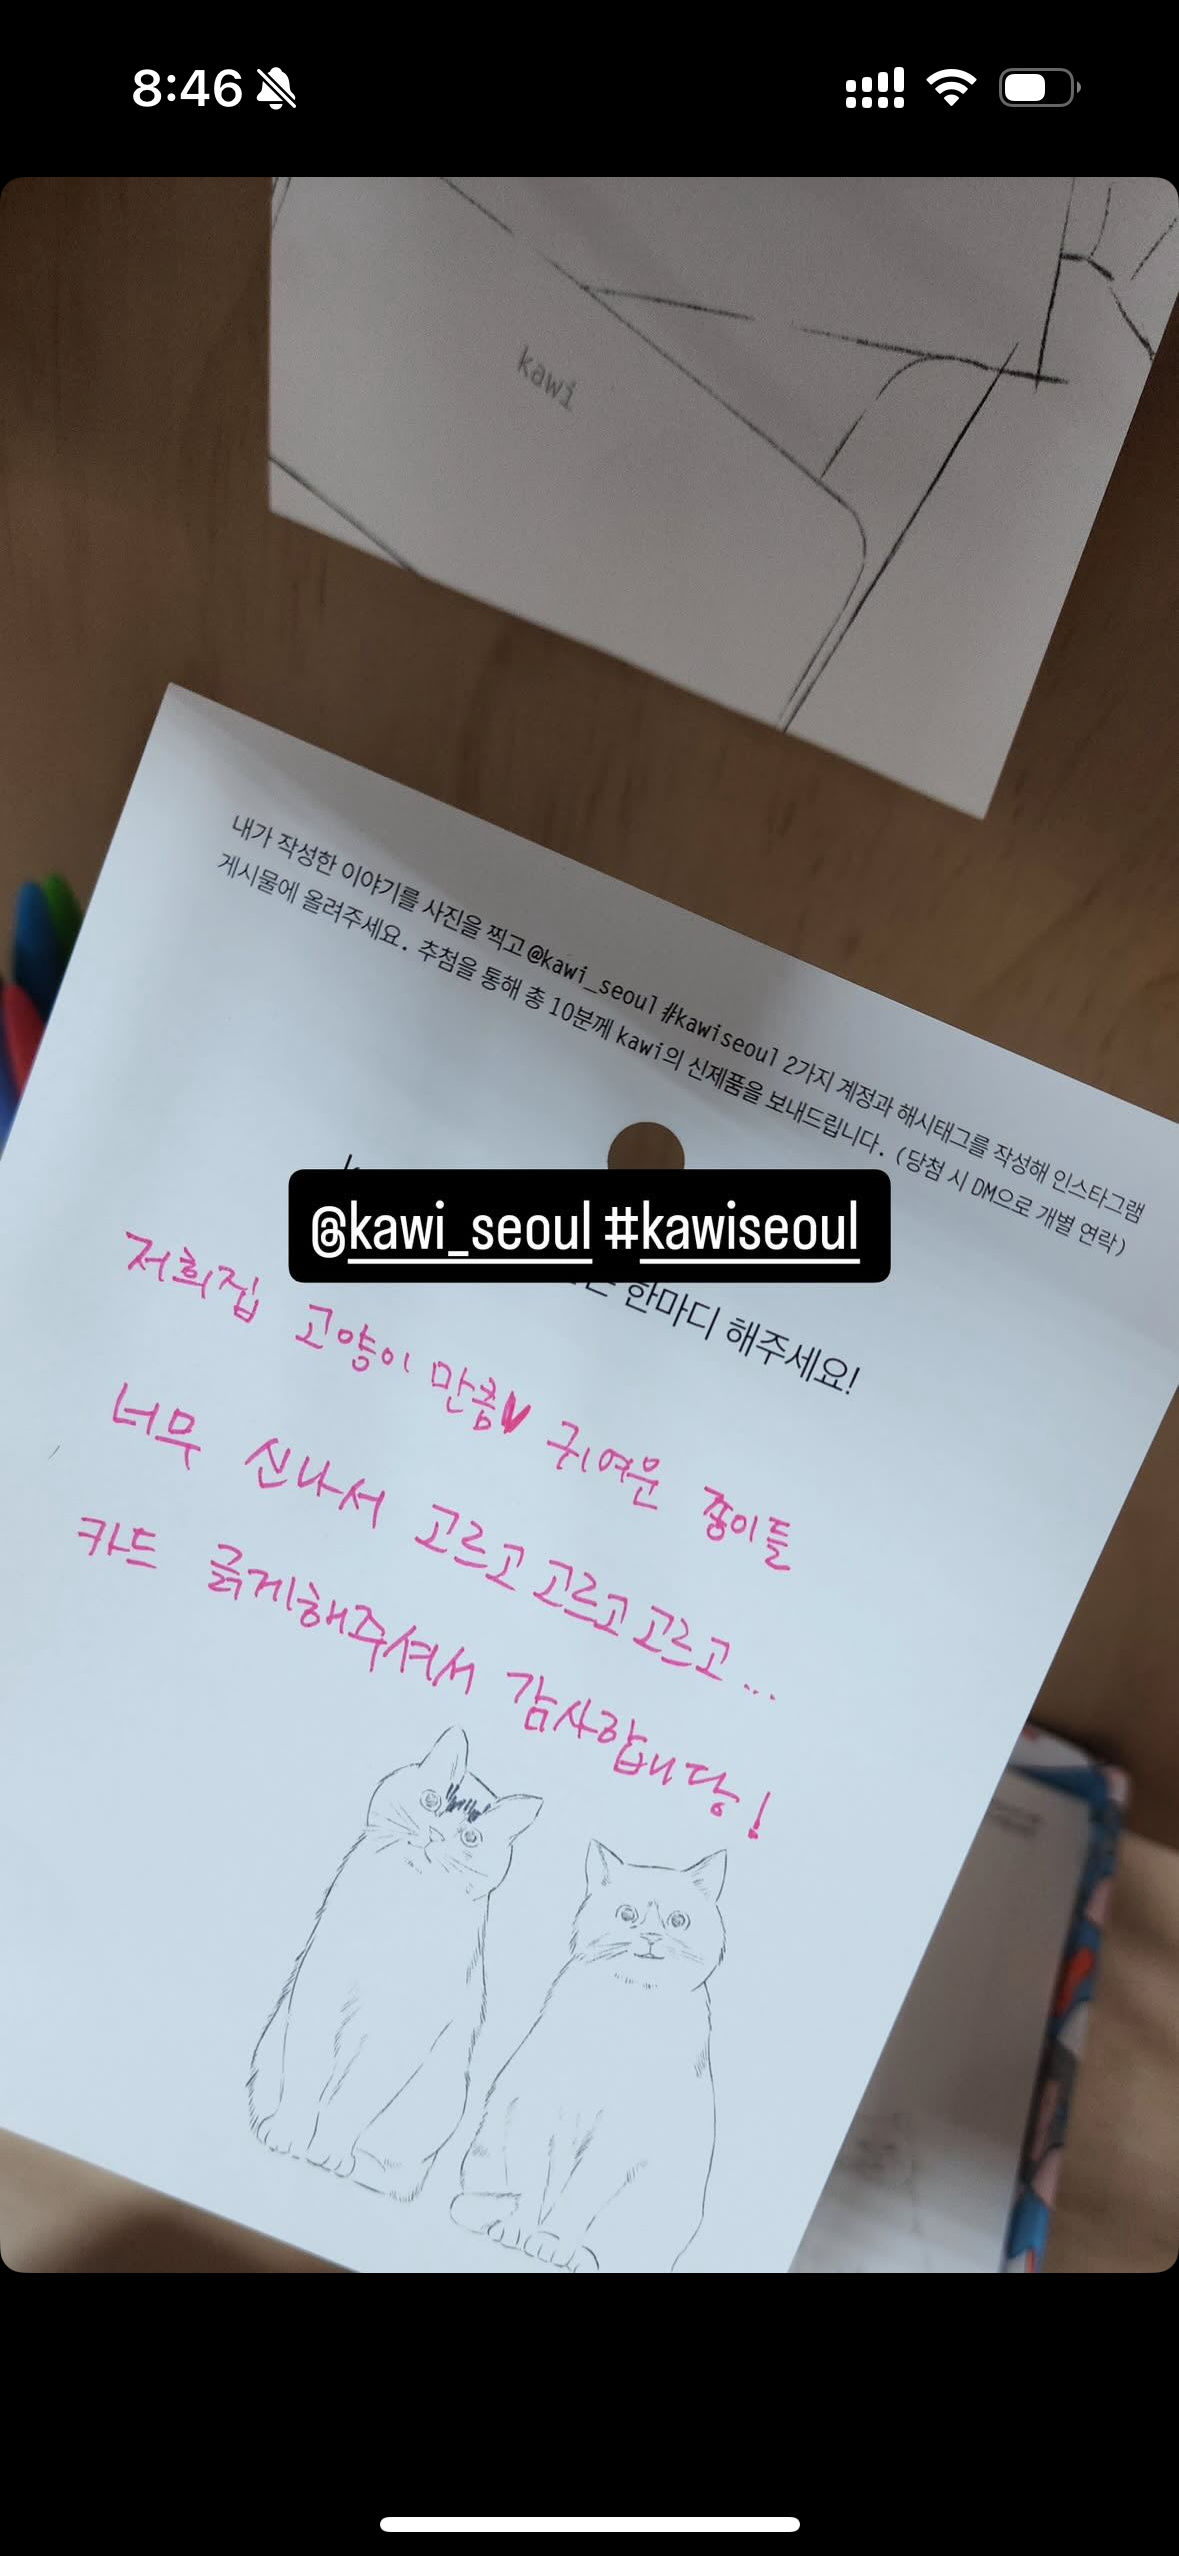 8:46
kawi
내가 작성한 이야기를 사진을 찍고 @kawi_seoul #kawiseoul 2가지 계정과 해시태그를 작성해 인스타그램
게시물에 올려주세요. 추첨을 통해 총 10분께 kawi의 신제품을 보내드립니다. (당첨 시 DM으로 개별 연락)
@kawi_seoul #kawiseoul
한마디 해주세요!
저희집 고양이 만큼♥ 귀여운 종이들
너무 신나서 고르고 고르고 고르고...
카드 긁게해주셔서 감사합니당!